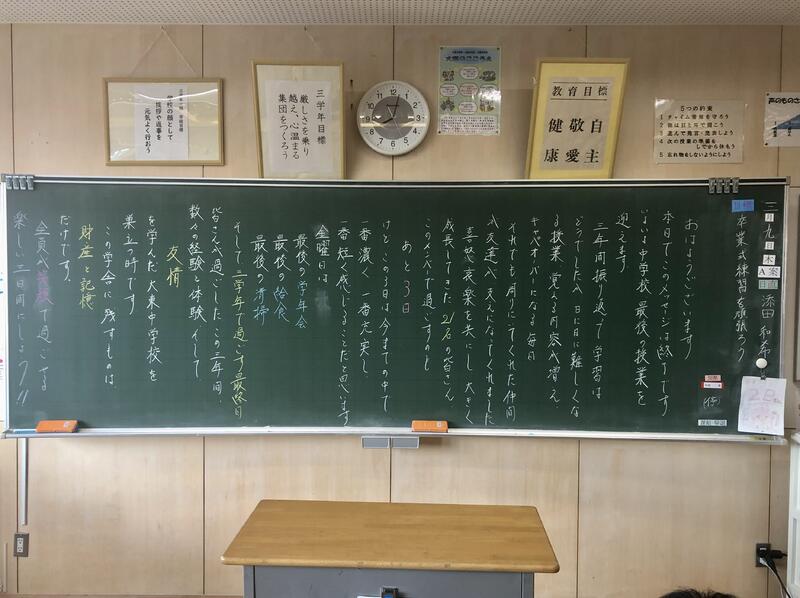 三学年目標
厳しさを乗り
越え、心温まる
集団をつくろう
学校の顔として
挨拶や返事を
元気よく行おう
教育目標
自主
敬愛
健康
5つの約束
1 チャイム着席を守ろう
2 話は目と耳で聞こう
3 進んで発言・発表しよう
4 次の授業の準備を
してから休もう
5 忘れ物をしないようにしよう
声のものさ
三月九日木
A案
日直 添田 和希
目標
卒業式練習を頑張ろう
おはようございます
本日でこのメッセージは終了です
いよいよ中学校最後の授業を
迎えます
三年間振り返って学習は
どうでしたか 日に日に難しくな
る授業、覚える内容が増え、
キャパオーバーになる毎日
それでも周りにいてくれた仲間
が友達が支えになってくれました
喜怒哀楽を共にし、大きく
成長してきた21名の皆さん
このメンバーで過ごすのも
あと3日
けど、この3日は今までの中で
一番濃く、一番充実し、
一番短く感じることだと思います
金曜日は
最後の学年会
最後の給食
最後の清掃
そして三学年で過ごす最終日
皆さんが過ごしたこの三年間、
数々の経験と体験そして
友情
を学んだ大東中学校を
巣立つ時です
この学舎に残すものは、
財産と記憶
だけです。
全員が笑顔で過ごせる
楽しい三日間にしよう!!